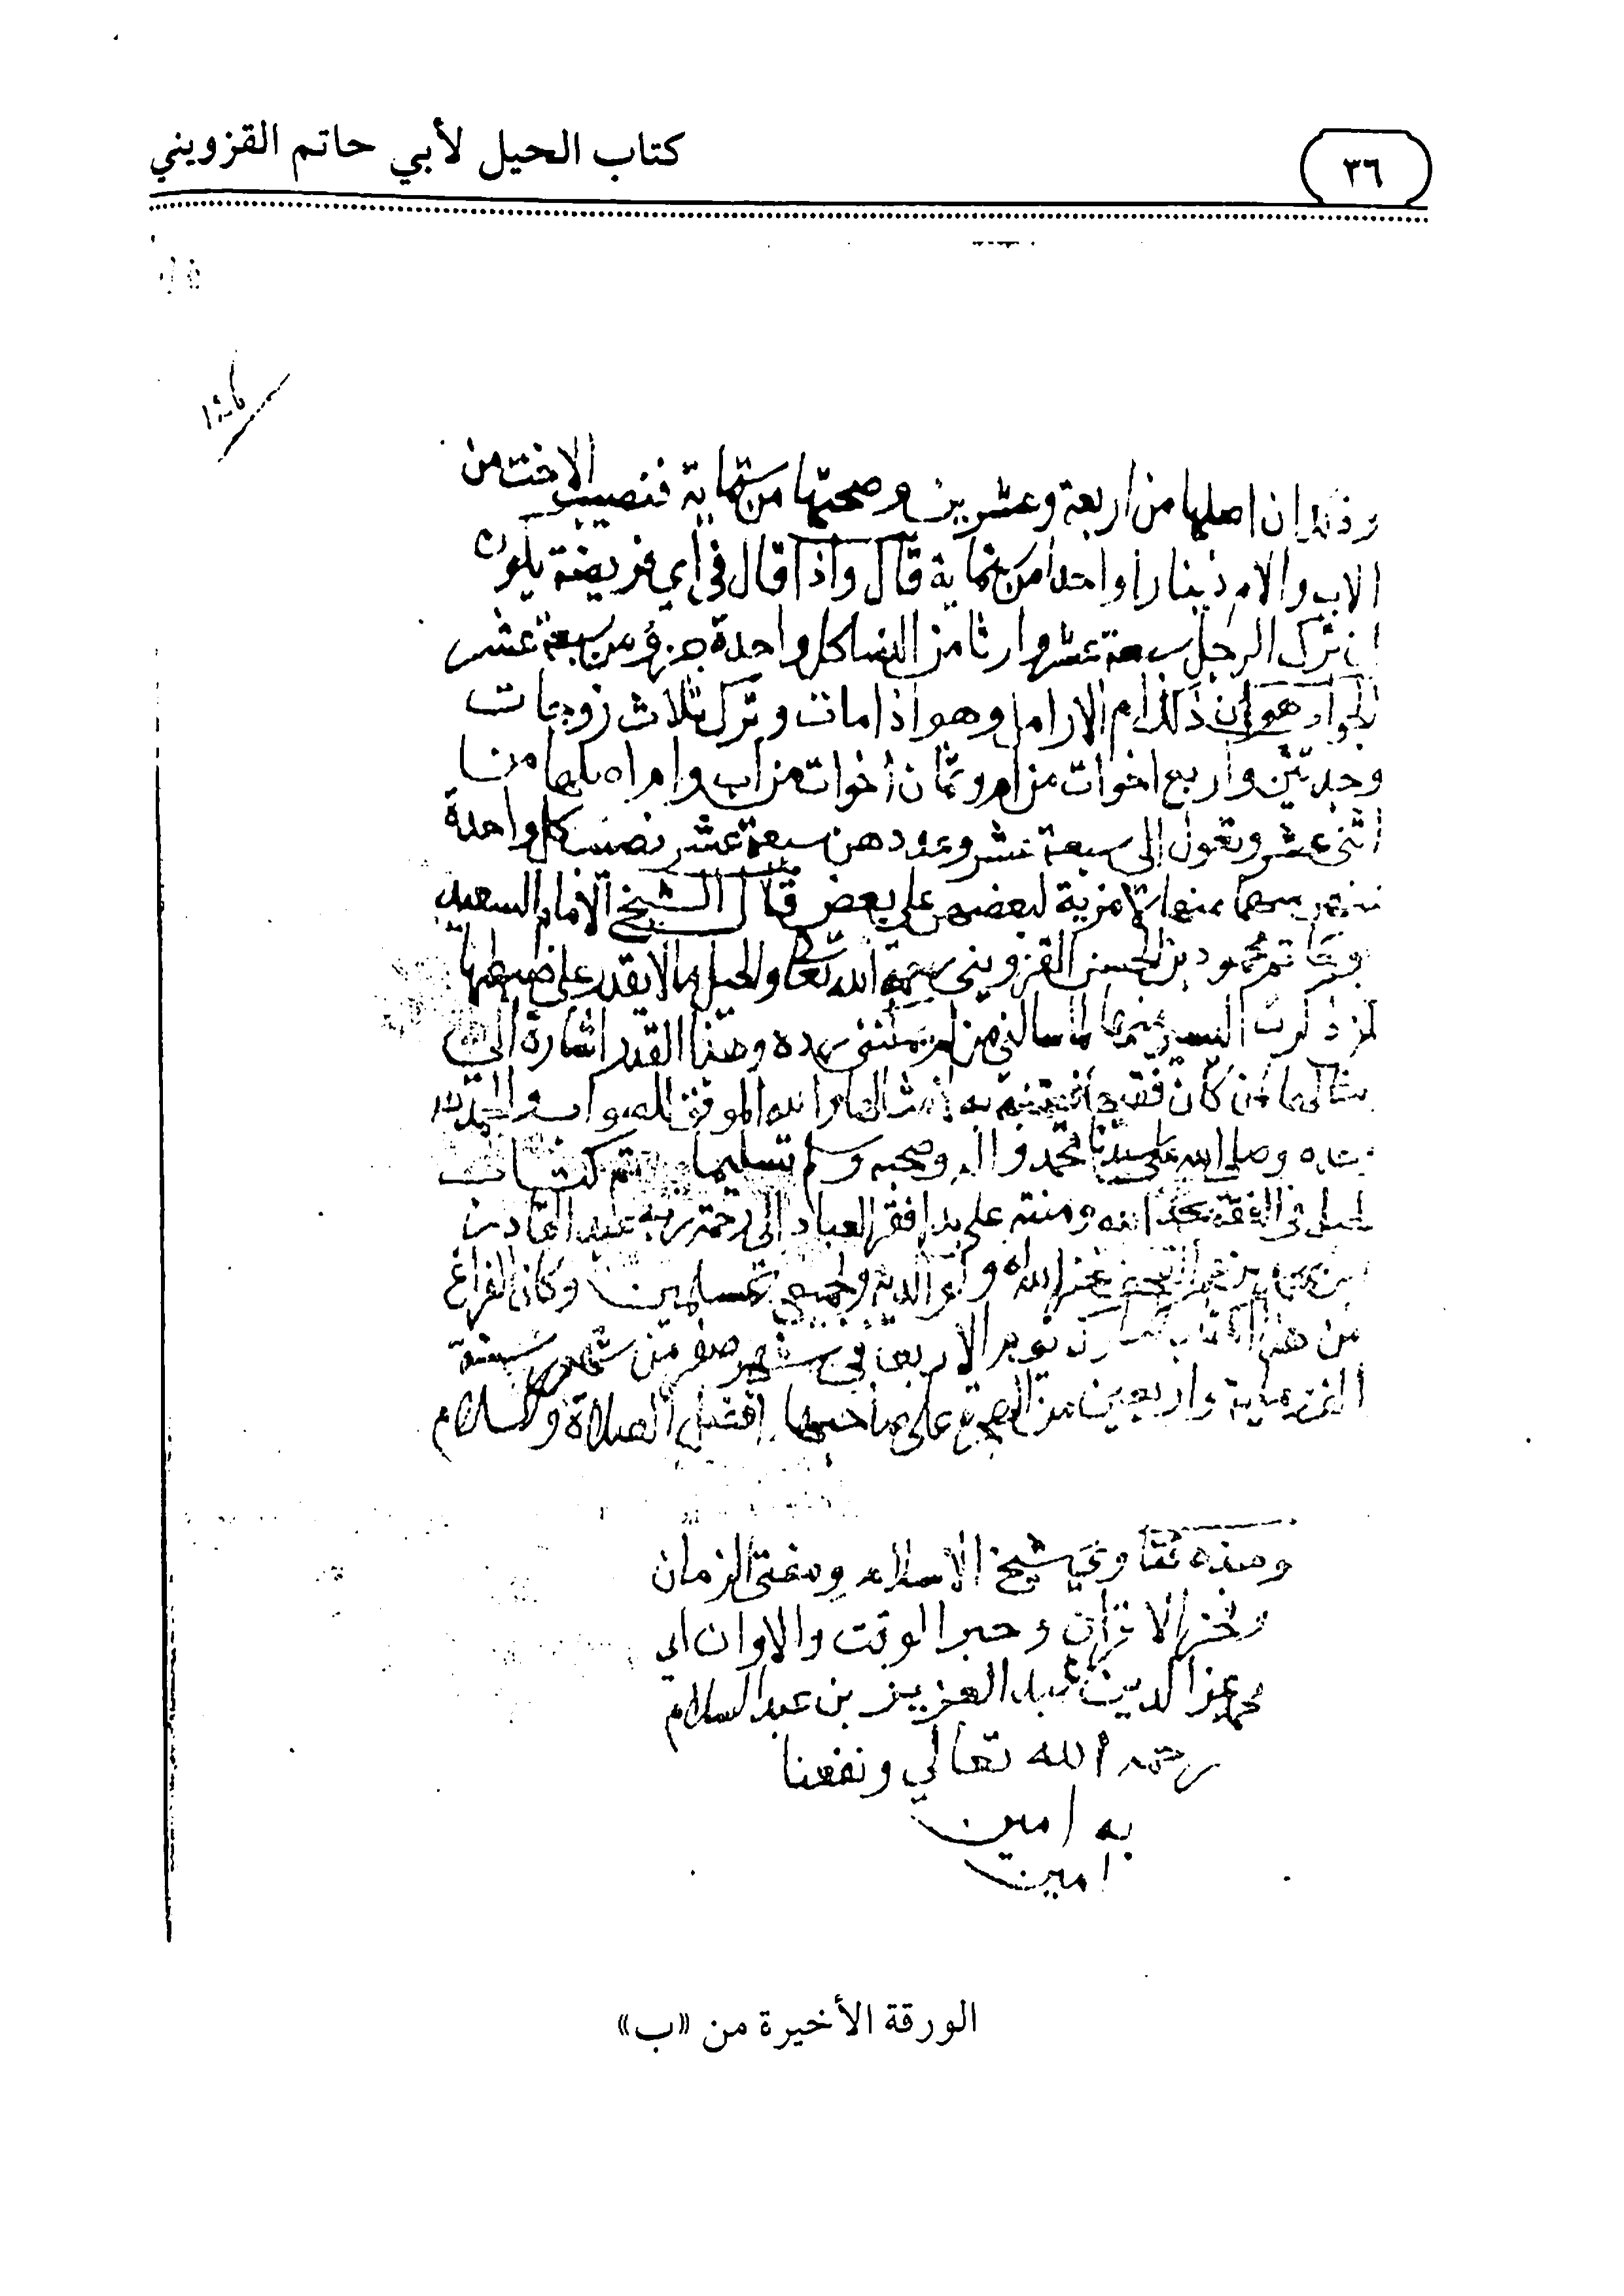 ٣٦
كتاب الحيل لأبي حاتم القزويني
وذلك ان اصلها من اربعة وعشرين وصحتها من ستماية فنصيب الاخت من
الاب والام دينارا واحدا من ستماية قال واذا قال في اي فريضة يكون
ان ترك الرجل سبعة عشر وارثا من النسا كل واحدة جزؤ من سبعة عشر
الجواب هو ان ذلك ام الارامل وهو اذا مات وترك ثلاث زوجات
وجدتين واربع اخوات من ام وثمان اخوات من اب وام اصلها من
اثنى عشر وتعول الى سبعة عشر وعددهن سبعة عشر نصيب كل واحدة
منهن سهما منها لا مزية لبعضهن على بعض قال الشيخ الامام السعيد
ابو حاتم محمود بن الحسن القزويني رحمه الله تعالى والحيل مما لا يقدر على ضبطها
ذكرت اليسير منها لما سالني من لم يمكنني رده وهذا القدر اشارة الى
مثالها لمن كان فقيها الله الموفق للصواب والحمد لله
وحده وصلى الله على سيدنا محمد واله وصحبه وسلم تسليما تم كتاب
الحيل في الفقه بحمد الله ومنته على يد افقر العباد الى رحمة ربه عبد القادر بن
غفر الله له ولوالديه ولجميع المسلمين وكان الفراغ
من هذا الكتاب المبارك يوم الاربعا في شهر صفر من شهور سنة
الف وماية واربعين من الهجرة على صاحبها افضل الصلاة والسلام
وهذه فتاوي شيخ الاسلام ومفتي الزمان
وفخر الاقران وحبر الوقت والاوان ابي
محمد عز الدين عبد العزيز بن عبد السلام
رحمه الله تعالي ونفعنا
به امين
امين
الورقة الأخيرة من «ب»